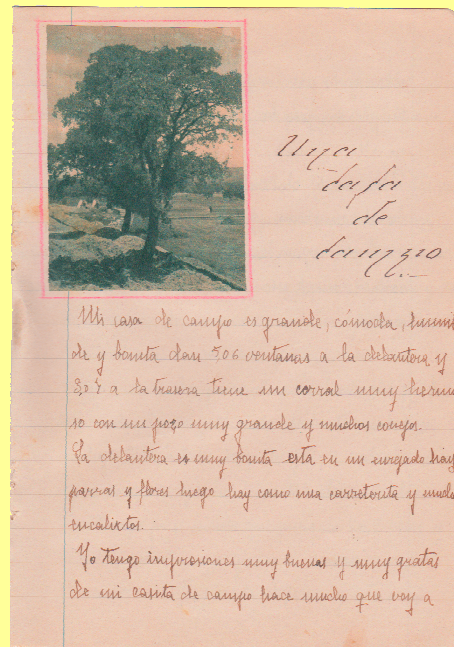 Una
casa
de
campo
Mi casa de campo es grande, cómoda, humil
de y bonita dan 5 o 6 ventanas a la delantera y
3 o 4 a la trasera tiene un corral muy hermo
so con un pozo muy grande y muchos conejos.
La delantera es muy bonita esta en un enrejado hay
parras y flores luego hay como una carreterita y mucho
encalixtos.
Yo tengo impresiones muy buenas y muy gratas
de mi casita de campo hace mucho que voy a